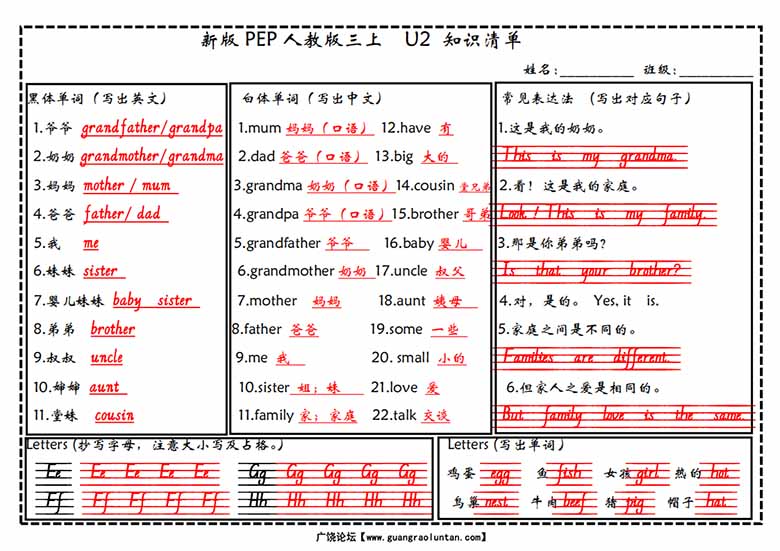 新版PEP人教版三上 U2 知识清单
姓名:__________ 班级:__________
黑体单词（写出英文）
1.爷爷 grandfather/grandpa
2.奶奶 grandmother/grandma
3.妈妈 mother / mum
4.爸爸 father/ dad
5.我 me
6.妹妹 sister
7.婴儿妹妹 baby sister
8.弟弟 brother
9.叔叔 uncle
10.婶婶 aunt
11.堂妹 cousin
白体单词（写出中文）
1.mum 妈妈（口语） 12.have 有
2.dad 爸爸（口语） 13.big 大的
3.grandma 奶奶（口语） 14.cousin 堂兄弟
4.grandpa 爷爷（口语） 15.brother 哥弟
5.grandfather 爷爷 16.baby 婴儿
6.grandmother 奶奶 17.uncle 叔父
7.mother 妈妈 18.aunt 姨母
8.father 爸爸 19.some 一些
9.me 我 20. small 小的
10.sister 姐；妹 21.love 爱
11.family 家；家庭 22.talk 交谈
常见表达法 （写出对应句子）
1.这是我的奶奶。
This is my grandma.
2.看！这是我的家庭。
Look! This is my family.
3.那是你弟弟吗?
Is that your brother?
4.对，是的。 Yes, it is.
5.家庭之间是不同的。
Families are different.
6.但家人之爱是相同的。
But family love is the same.
Letters (抄写字母，注意大小写及占格。)
Ee Ee Ee Ee Ee Gg Gg Gg Gg Gg
Ff Ff Ff Ff Ff Hh Hh Hh Hh Hh
Letters （写出单词）
鸡蛋 egg 鱼 fish 女孩 girl 热的 hot
鸟巢 nest 牛肉 beef 猪 pig 帽子 hat
广饶论坛【www.guangraoluntan.com】